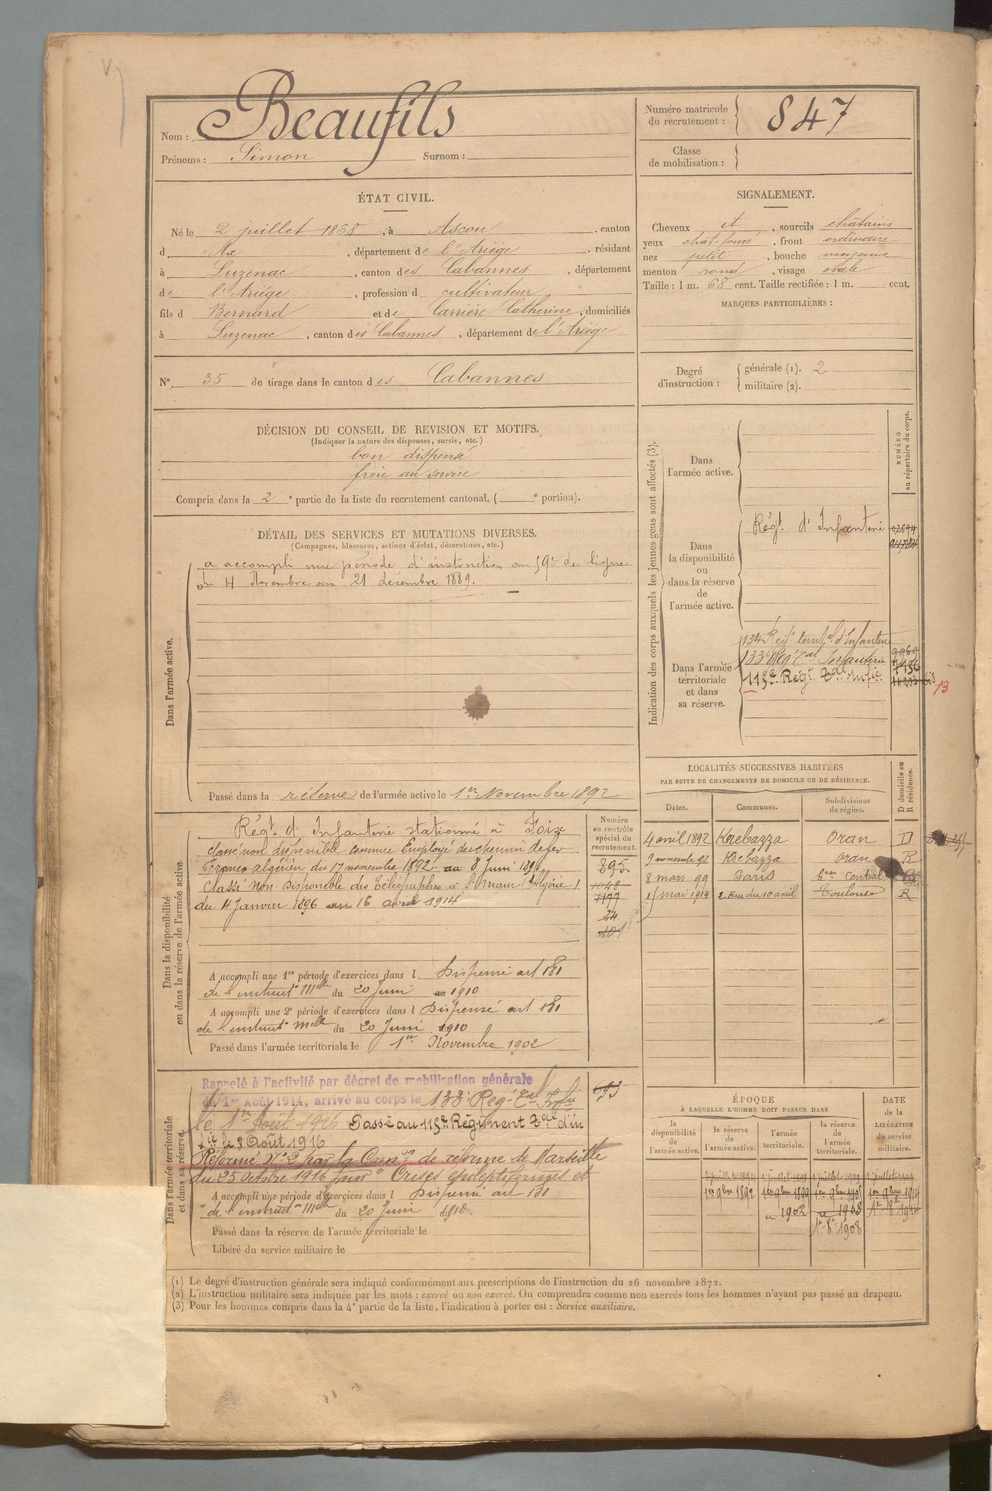 Nom : Beaufils
Prénoms : Simon Surnom :
Numéro matricule du recrutement : 847
Classe de mobilisation :
ÉTAT CIVIL.
Né le 2 juillet 1868, à Ascou, canton
d Ax, département de l'Ariège, résidant
à Luzenac, canton des Cabannes, département
de l'Ariège, profession d cultivateur
fils d Bernard et de Carrière Catherine, domiciliés
à Luzenac, canton des Cabannes, département de l'Ariège
N° 35 de tirage dans le canton des Cabannes
SIGNALEMENT.
Cheveux et, sourcils châtains
yeux, front ordinaire
nez petit, bouche moyenne
menton rond, visage ovale
Taille : 1 m. 68 cent. Taille rectifiée : 1 m. cent.
MARQUES PARTICULIÈRES :
Degré d'instruction : générale (1). 2
militaire (2).
DÉCISION DU CONSEIL DE REVISION ET MOTIFS.
(Indiquer la nature des dispenses, sursis, etc.)
bon dispensé
frère au service
Compris dans la 2e partie de la liste du recrutement cantonal. ( e portion).
DÉTAIL DES SERVICES ET MUTATIONS DIVERSES.
(Campagnes, blessures, actions d'éclat, décorations, etc.)
Dans l'armée active.
a accompli une période d'instruction au 59e de ligne
du 4 Novembre au 21 décembre 1889.
Passé dans la réserve de l'armée active le 1er Novembre 1892
Indication des corps auxquels les jeunes gens sont affectés (3).
NUMÉRO au répertoire du corps.
Dans l'armée active.
Dans la disponibilité ou dans la réserve de l'armée active.
Régt d'Infanterie
Dans l'armée territoriale et dans sa réserve.
134 Régt territal d'Infanterie
133e Régt Tal Infanterie
115e Régt Tal Infie
13
LOCALITÉS SUCCESSIVES HABITÉES
PAR SUITE DE CHANGEMENTS DE DOMICILE OU DE RÉSIDENCE.
Dates. Communes. Subdivisions de région. D domicile ou R résidence.
4 avril 1892 Krebazza Oran D
Krebazza Oran R
8 mars 99 Paris
1 mai 1914 2. Rue du 10 avril Toulouse R
Dans la disponibilité ou dans la réserve de l'armée active
Numéro au contrôle spécial du recrutement.
Régt d'Infanterie stationné à Foix
classé non disponible comme Employé du chemin de fer
Franco algérien du 17 novembre 1892 au 8 Juin
Classé Non Disponible des Télégraphes
du 4 Janvier 1896 au 16 avril 1914
895
A accompli une 1re période d'exercices dans l Dispensé art 181
de l'instruct. Mlle du 20 Juin 1910
A accompli une 2e période d'exercices dans l Dispensé art 181
de l'instruct. Mlle du 20 Juin 1910
Passé dans l'armée territoriale le 1er Novembre 1902
Dans l'armée territoriale et dans sa réserve.
Rappelé à l'activité par décret de mobilisation générale
du 1er Août 1914, arrivé au corps le 133 Rég. Tal Infie
le Août 1916 Passé au 115e Régiment Tal d'In
fie le 8 Août 1916
Réformé N°2 par la Comon de réforme de Marseille
du 25 octobre 1916 pour Crises épileptiformes
A accompli une période d'exercices dans l Dispensé art 181
de l'instruct. Mlle du 20 Juin 1910.
Passé dans la réserve de l'armée territoriale le
Libéré du service militaire le
ÉPOQUE
À LAQUELLE L'HOMME DOIT PASSER DANS
la disponibilité de l'armée active. la réserve de l'armée active. l'armée territoriale. la réserve de l'armée territoriale. DATE de la LIBÉRATION du service militaire.
1er 9bre 1892
1902
1908
(1) Le degré d'instruction générale sera indiqué conformément aux prescriptions de l'instruction du 26 novembre 1872.
(2) L'instruction militaire sera indiquée par les mots : exercé ou non exercé. On comprendra comme non exercés tous les hommes n'ayant pas passé au drapeau.
(3) Pour les hommes compris dans la 4e partie de la liste, l'indication à porter est : Service auxiliaire.